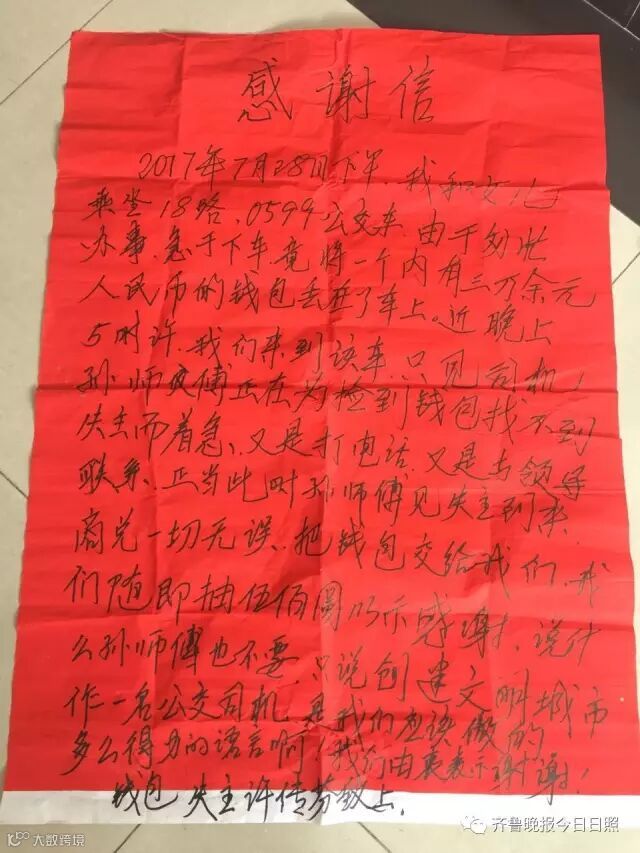 感谢信
2017年7月28日下午,我和女儿
乘坐18路、0599公交车,由于匆忙
办事,急于下车竟将一个内有三万余元
人民币的钱包丢在了车上。近晚上
5时许,我们来到该车,只见司机
孙师傅正在为捡到钱包找不到
失主而着急,又是打电话,又是与领导
联系,正当此时孙师傅见失主到来,
一切无误,把钱包交给我们,我
们随即抽伍佰圆以示感谢,说什
么孙师傅也不要,只说创建文明城市
作一名公交司机,是我们应该做的
多么得力的语言啊!我们由衷表示谢谢!
钱包失主许传芬敬上.
大数跨境
齐鲁晚报今日日照